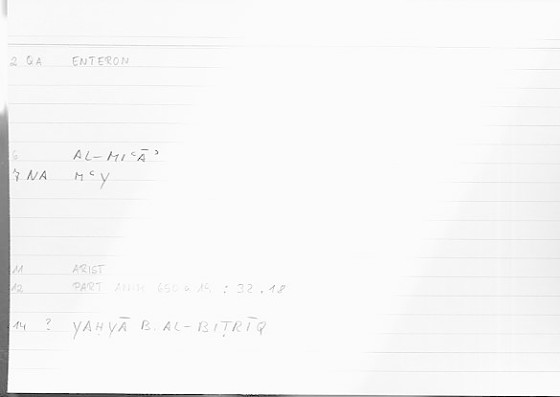 2 QA ENTERON
6 AL-MIʿĀʾ
7 NA MʿY
11 ARIST
12 PART ANIM 650 : 32.18
14 ? YAḤYĀ B. AL-BIṬRĪQ